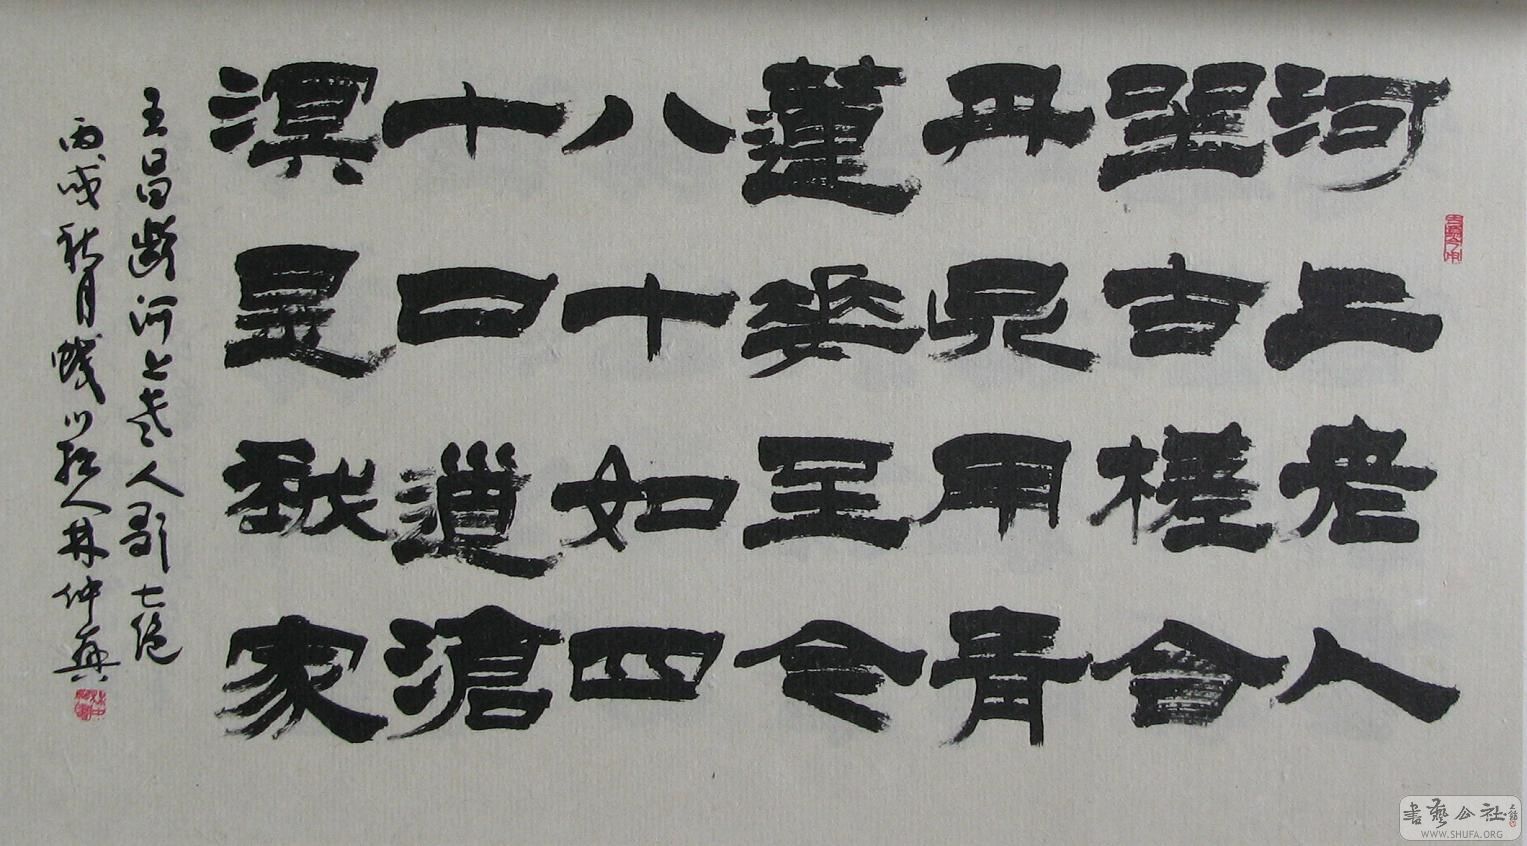 河上老人
坐古槎合
丹只用青
蓮花至今
八十如四
十口道滄
溟是我家
王昌齡河上老人歌七絕
丙戌秋月人林仲興
書藝公社
WWW.SHUFA.ORG